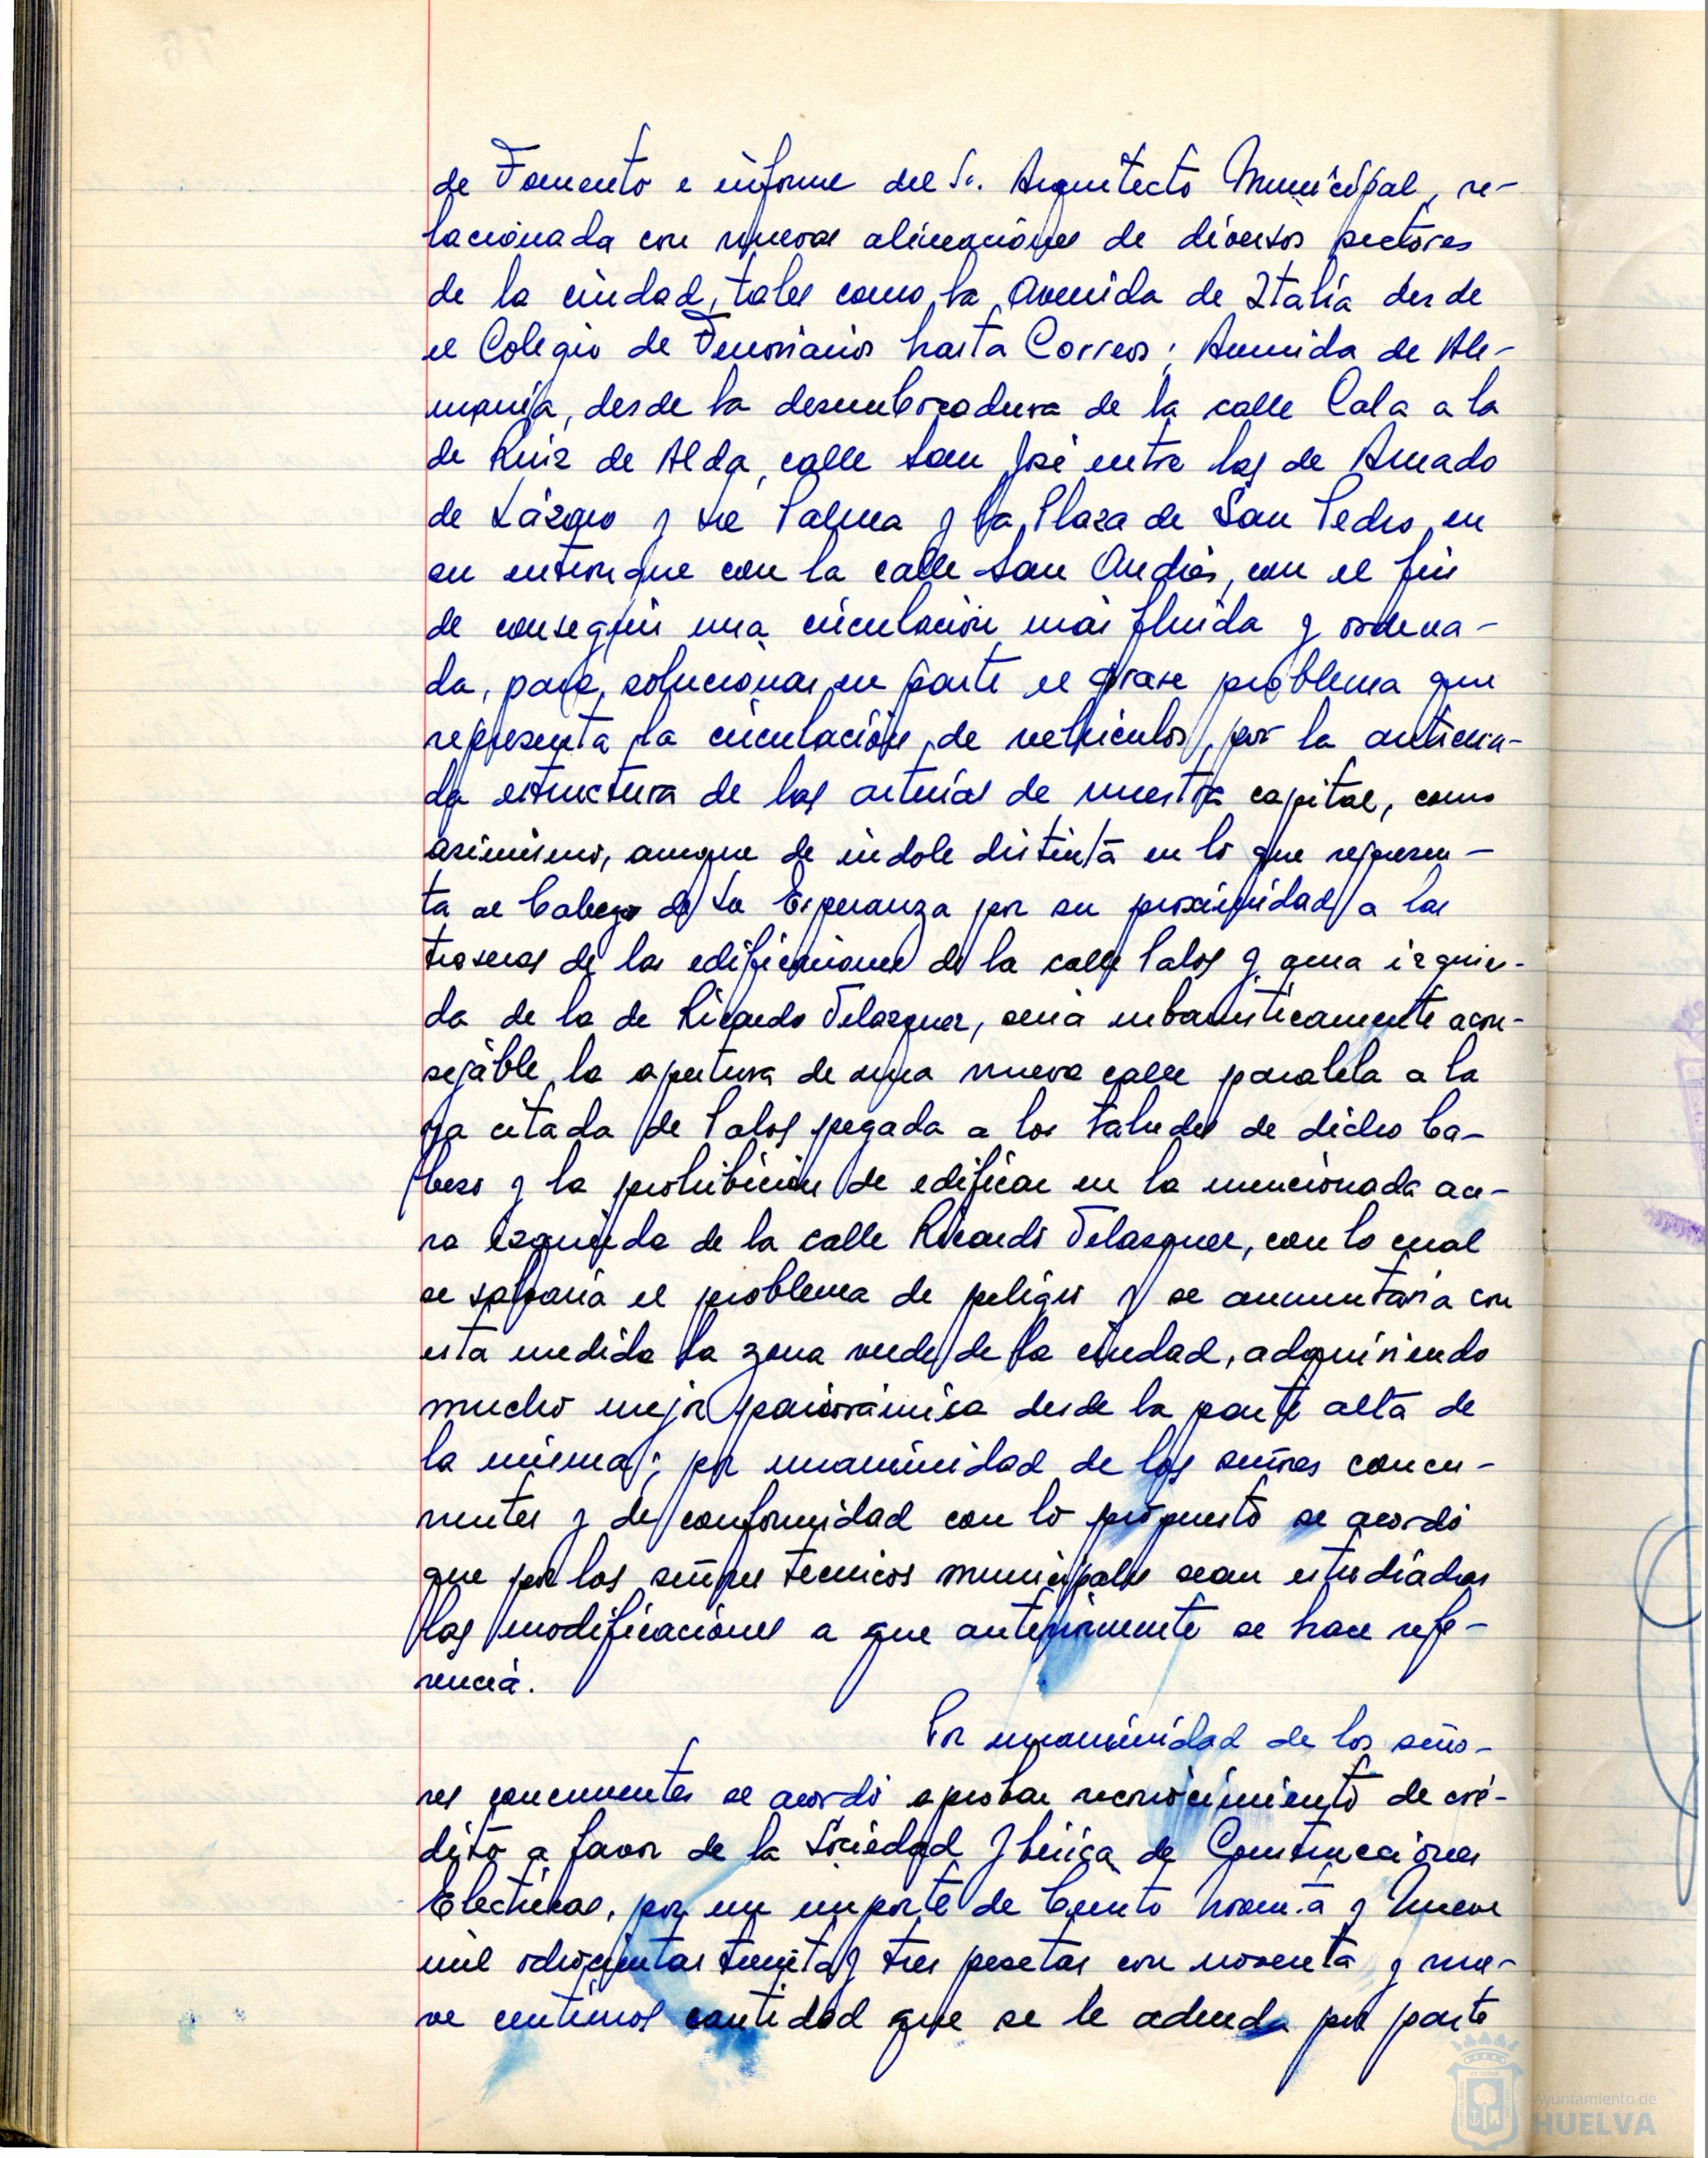 de Fomento e informe del Sr. Arquitecto Municipal, re-
lacionada con nuevas alineaciones de diversos sectores
de la ciudad, tales como la Avenida de Italia desde
el Colegio de Ferroviarios hasta Correos; Avenida de Ale-
mania, desde la desembocadura de la calle Cala a la
de Ruiz de Alda, calle San José entre las de Amado
de Lázaro y La Palma y la Plaza de San Pedro, en
su entronque con la calle San Andrés, con el fin
de conseguir una circulación más fluida y ordena-
da, para solucionar en parte el grave problema que
representa la circulación de vehículos, por la anticua-
da estructura de las arterias de nuestra capital, como
asimismo, aunque de indole distinta en lo que represen-
ta al Cabezo de La Esperanza por su proximidad a las
traseras de las edificaciones de la calle Palos y acera izquier-
da de la de Ricardo Velazquez, sería urbanisticamente acon-
sejable, la apertura de una nueva calle paralela a la
ya citada de Palos pegada a los taludes de dicho Ca-
bezo y la prohibición de edificar en la mencionada ace-
ra izquierda de la calle Ricardo Velazquez, con lo cual
se salvaría el problema de peligro y se aumentaría con
esta medida la zona verde de la ciudad, adquiriendo
mucho mejor panorámica desde la parte alta de
la misma; por unanimidad de los señores concu-
rrentes y de conformidad con lo propuesto se acordó
que por los señores técnicos municipales sean estudiadas
las modificaciones a que anteriormente se hace refe-
rencia.
Por unanimidad de los seño-
res concurrentes se acordó aprobar reconocimiento de cré-
dito a favor de la Sociedad Ibérica de Construcciones
Electricas, por un importe de Ciento noventa y nueve
mil ochocientas treinta y tres pesetas con noventa y nue-
ve centimos cantidad que se le adeuda por parte
Ayuntamiento de
HUELVA